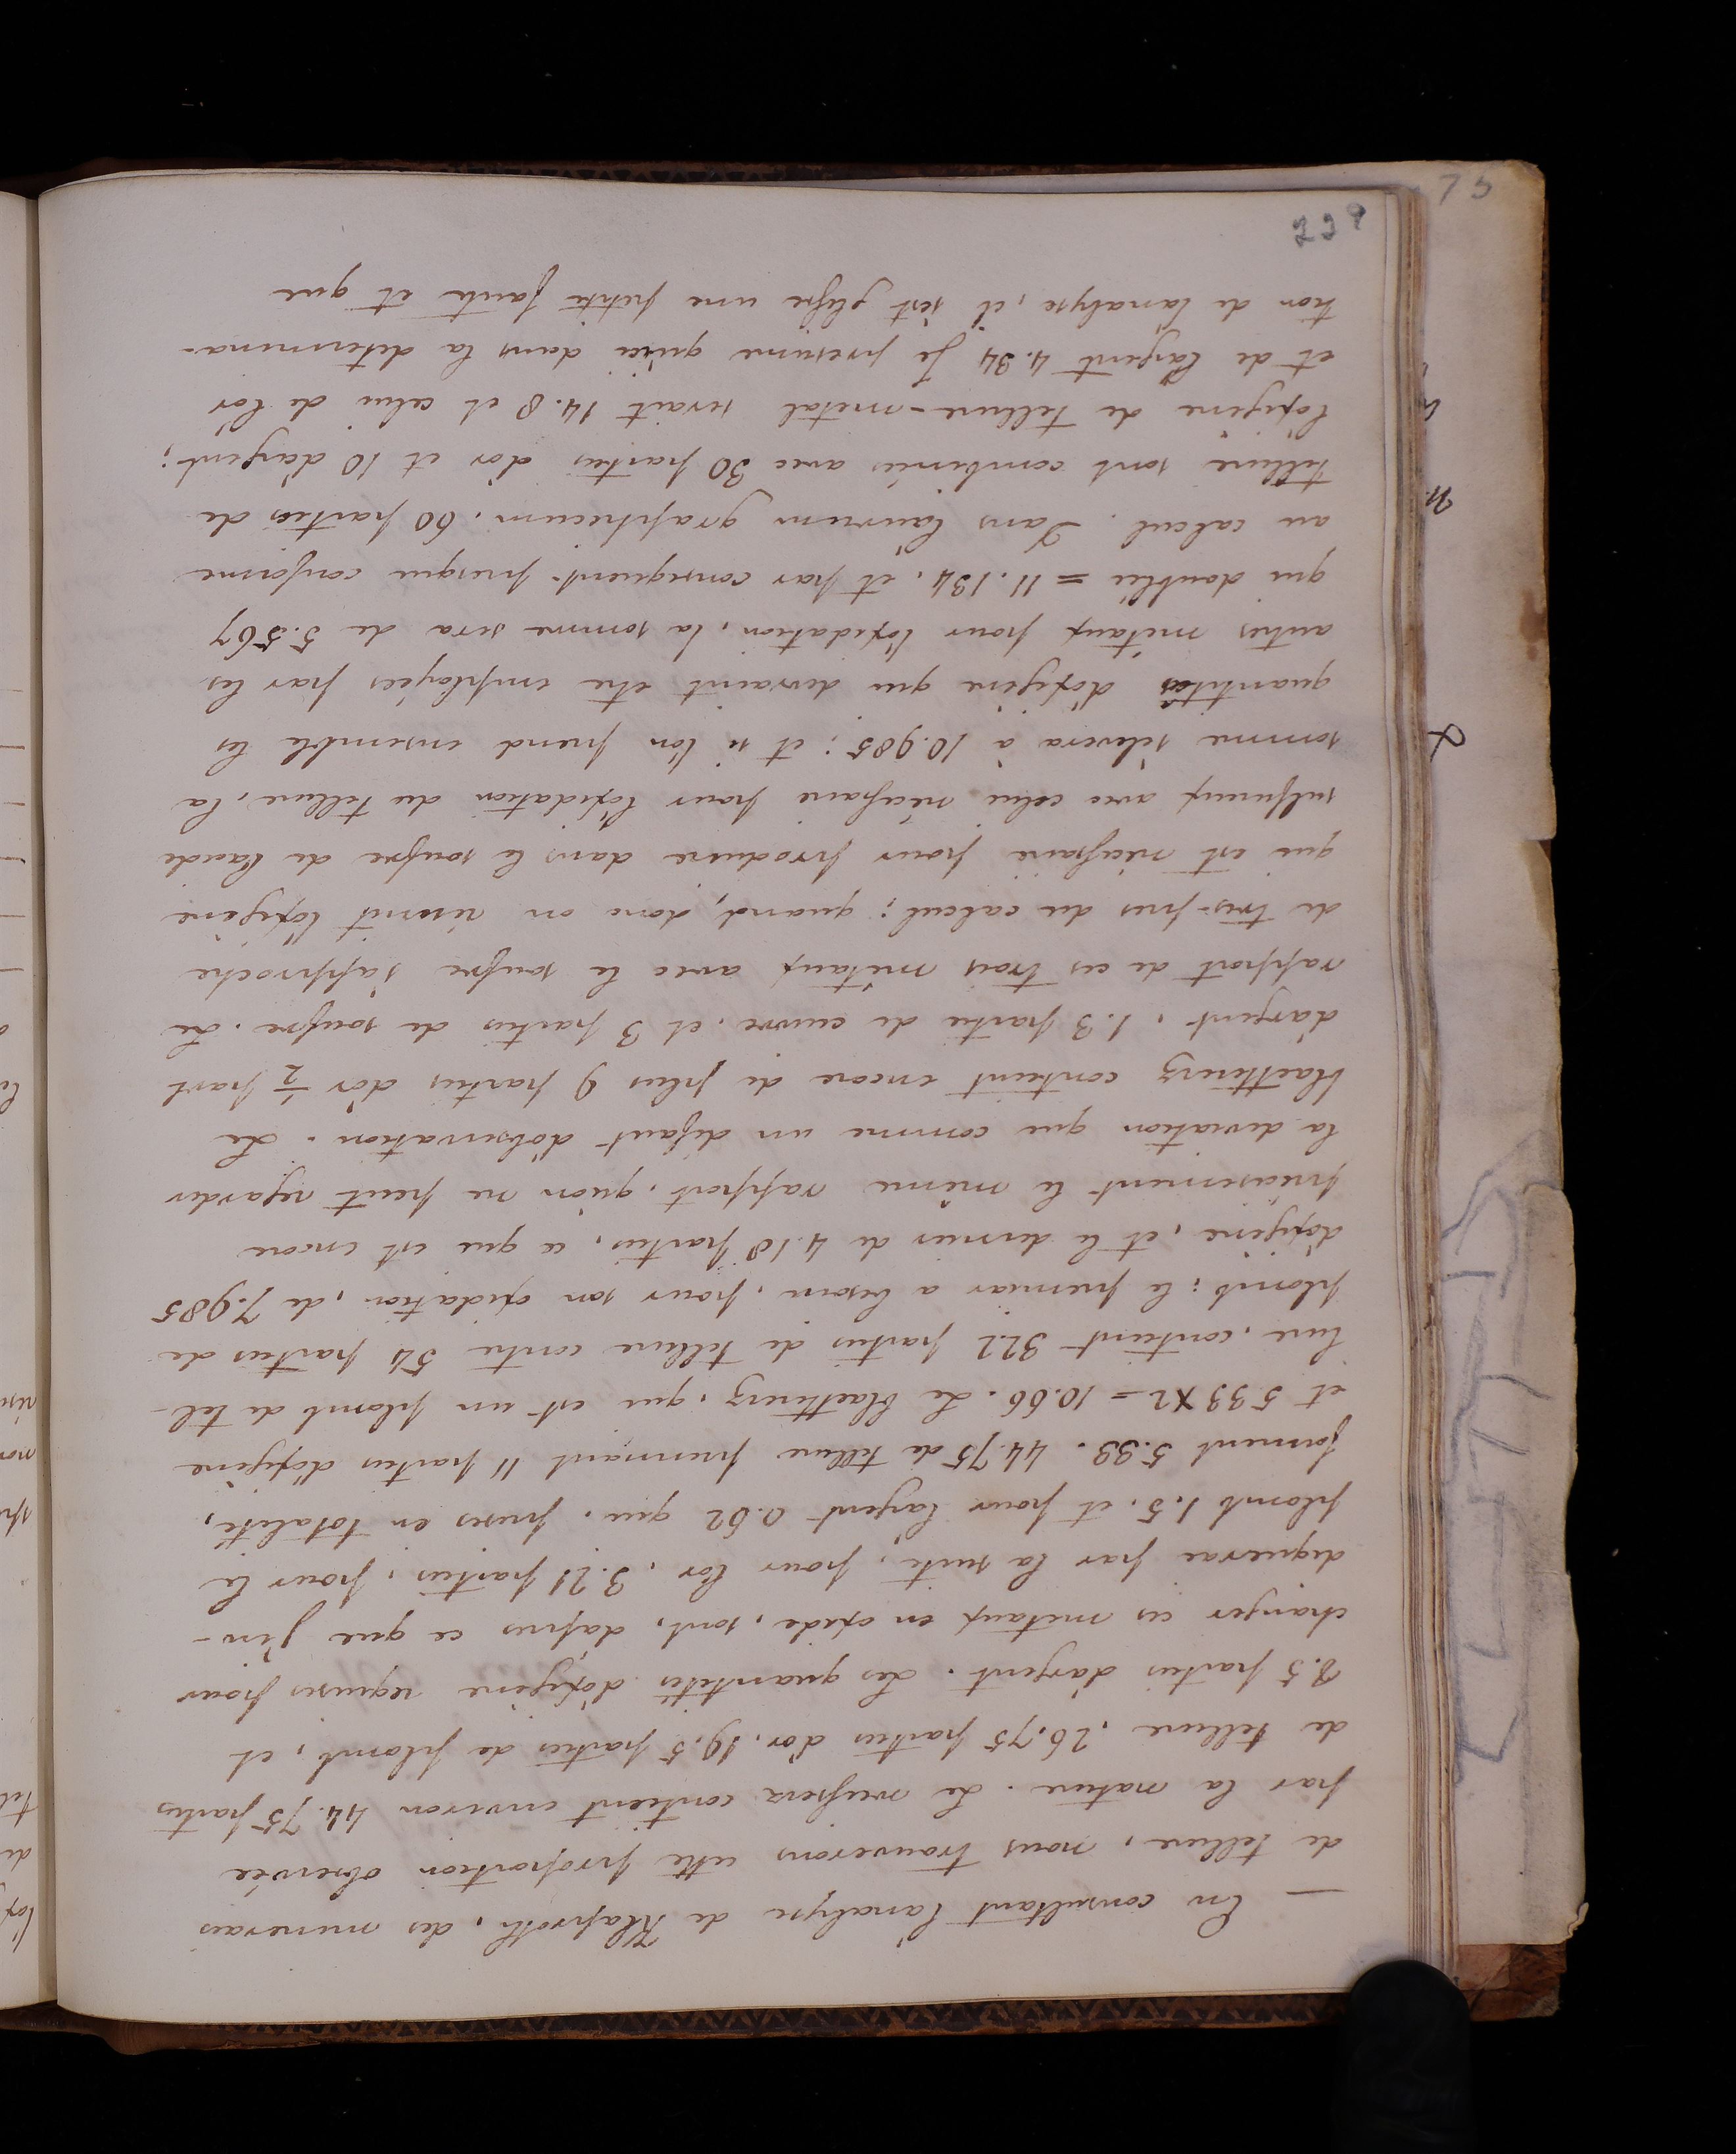 — En consultant l'analyse de Klaproth, des minerais
de tellure, nous trouverons cette proportion observée
par la nature. Le weisserz contient environ 44.75 parties
de tellure, 26.75 parties d'or, 19.5 parties de plomb, et
8.5 parties d'argent. Les quantités d'oxigène requises pour
changer ces métaux en oxide, sont, d'apres ce que j'in-
diquerai par la suite, pour l'or, 3.21 parties, pour le
plomb 1.5. et pour l'argent 0.62 qui, prises en totalité,
forment 5.33. 44.75 de tellure prennent 11 parties d'oxigène
et 5.33 × 2 = 10.66. Le blaettererz, qui est un plomb de tel-
lure, contient 32.2 parties de tellure contre 54 parties de
plomb; le premier a besoin, pour son oxidation, de 7.985
d'oxigène, et le dernier de 4.18 parties, ce que est encore
précisement le même rapport, qu'on ne peut regarder
la deviation que comme un défaut d'observation. Le
blaettererz contient encore de plus 9 parties d'or ½ part
d'argent, 1.3 partie de cuivre, et 3 parties de soufre. Le
rapport de ces trois métaux avec le soufre s'approche
de très-pres du calcul; quand, donc on réunit l'oxigène
qui est nécessaire pour produire dans le soufre de l'acide
sulfureux avec celui nécessaire pour l'oxidation du tellure, la
somme s'élevera à 10.985; et si l'on prend ensemble les
quantités d'oxigène qui devraient etre employées par les
autres métaux pour l'oxidation, la somme sera de 5.567
qui doublée = 11.134, et par consequent presque conforme
au calcul. Dans l'aurum graphicum, 60 parties de
tellure sont combinées avec 30 parties d'or et 10 d'argent;
l'oxigène de tellure-metal serait 14.8 et celui de l'or
et de l'argent 4.34 Je presume qu'ici dans la determina-
tion de l'analyse, il s'est glissé une petite faute et que
229
75